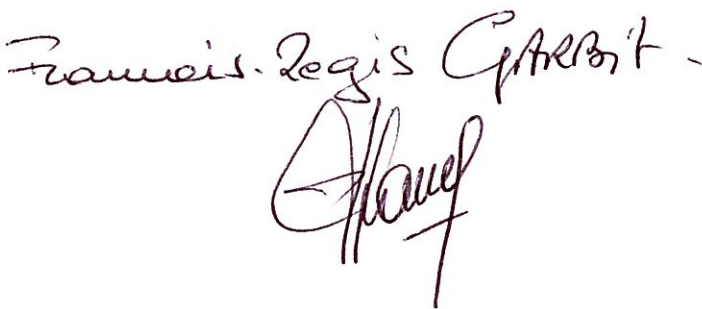 Francois-Regis GARBIT.